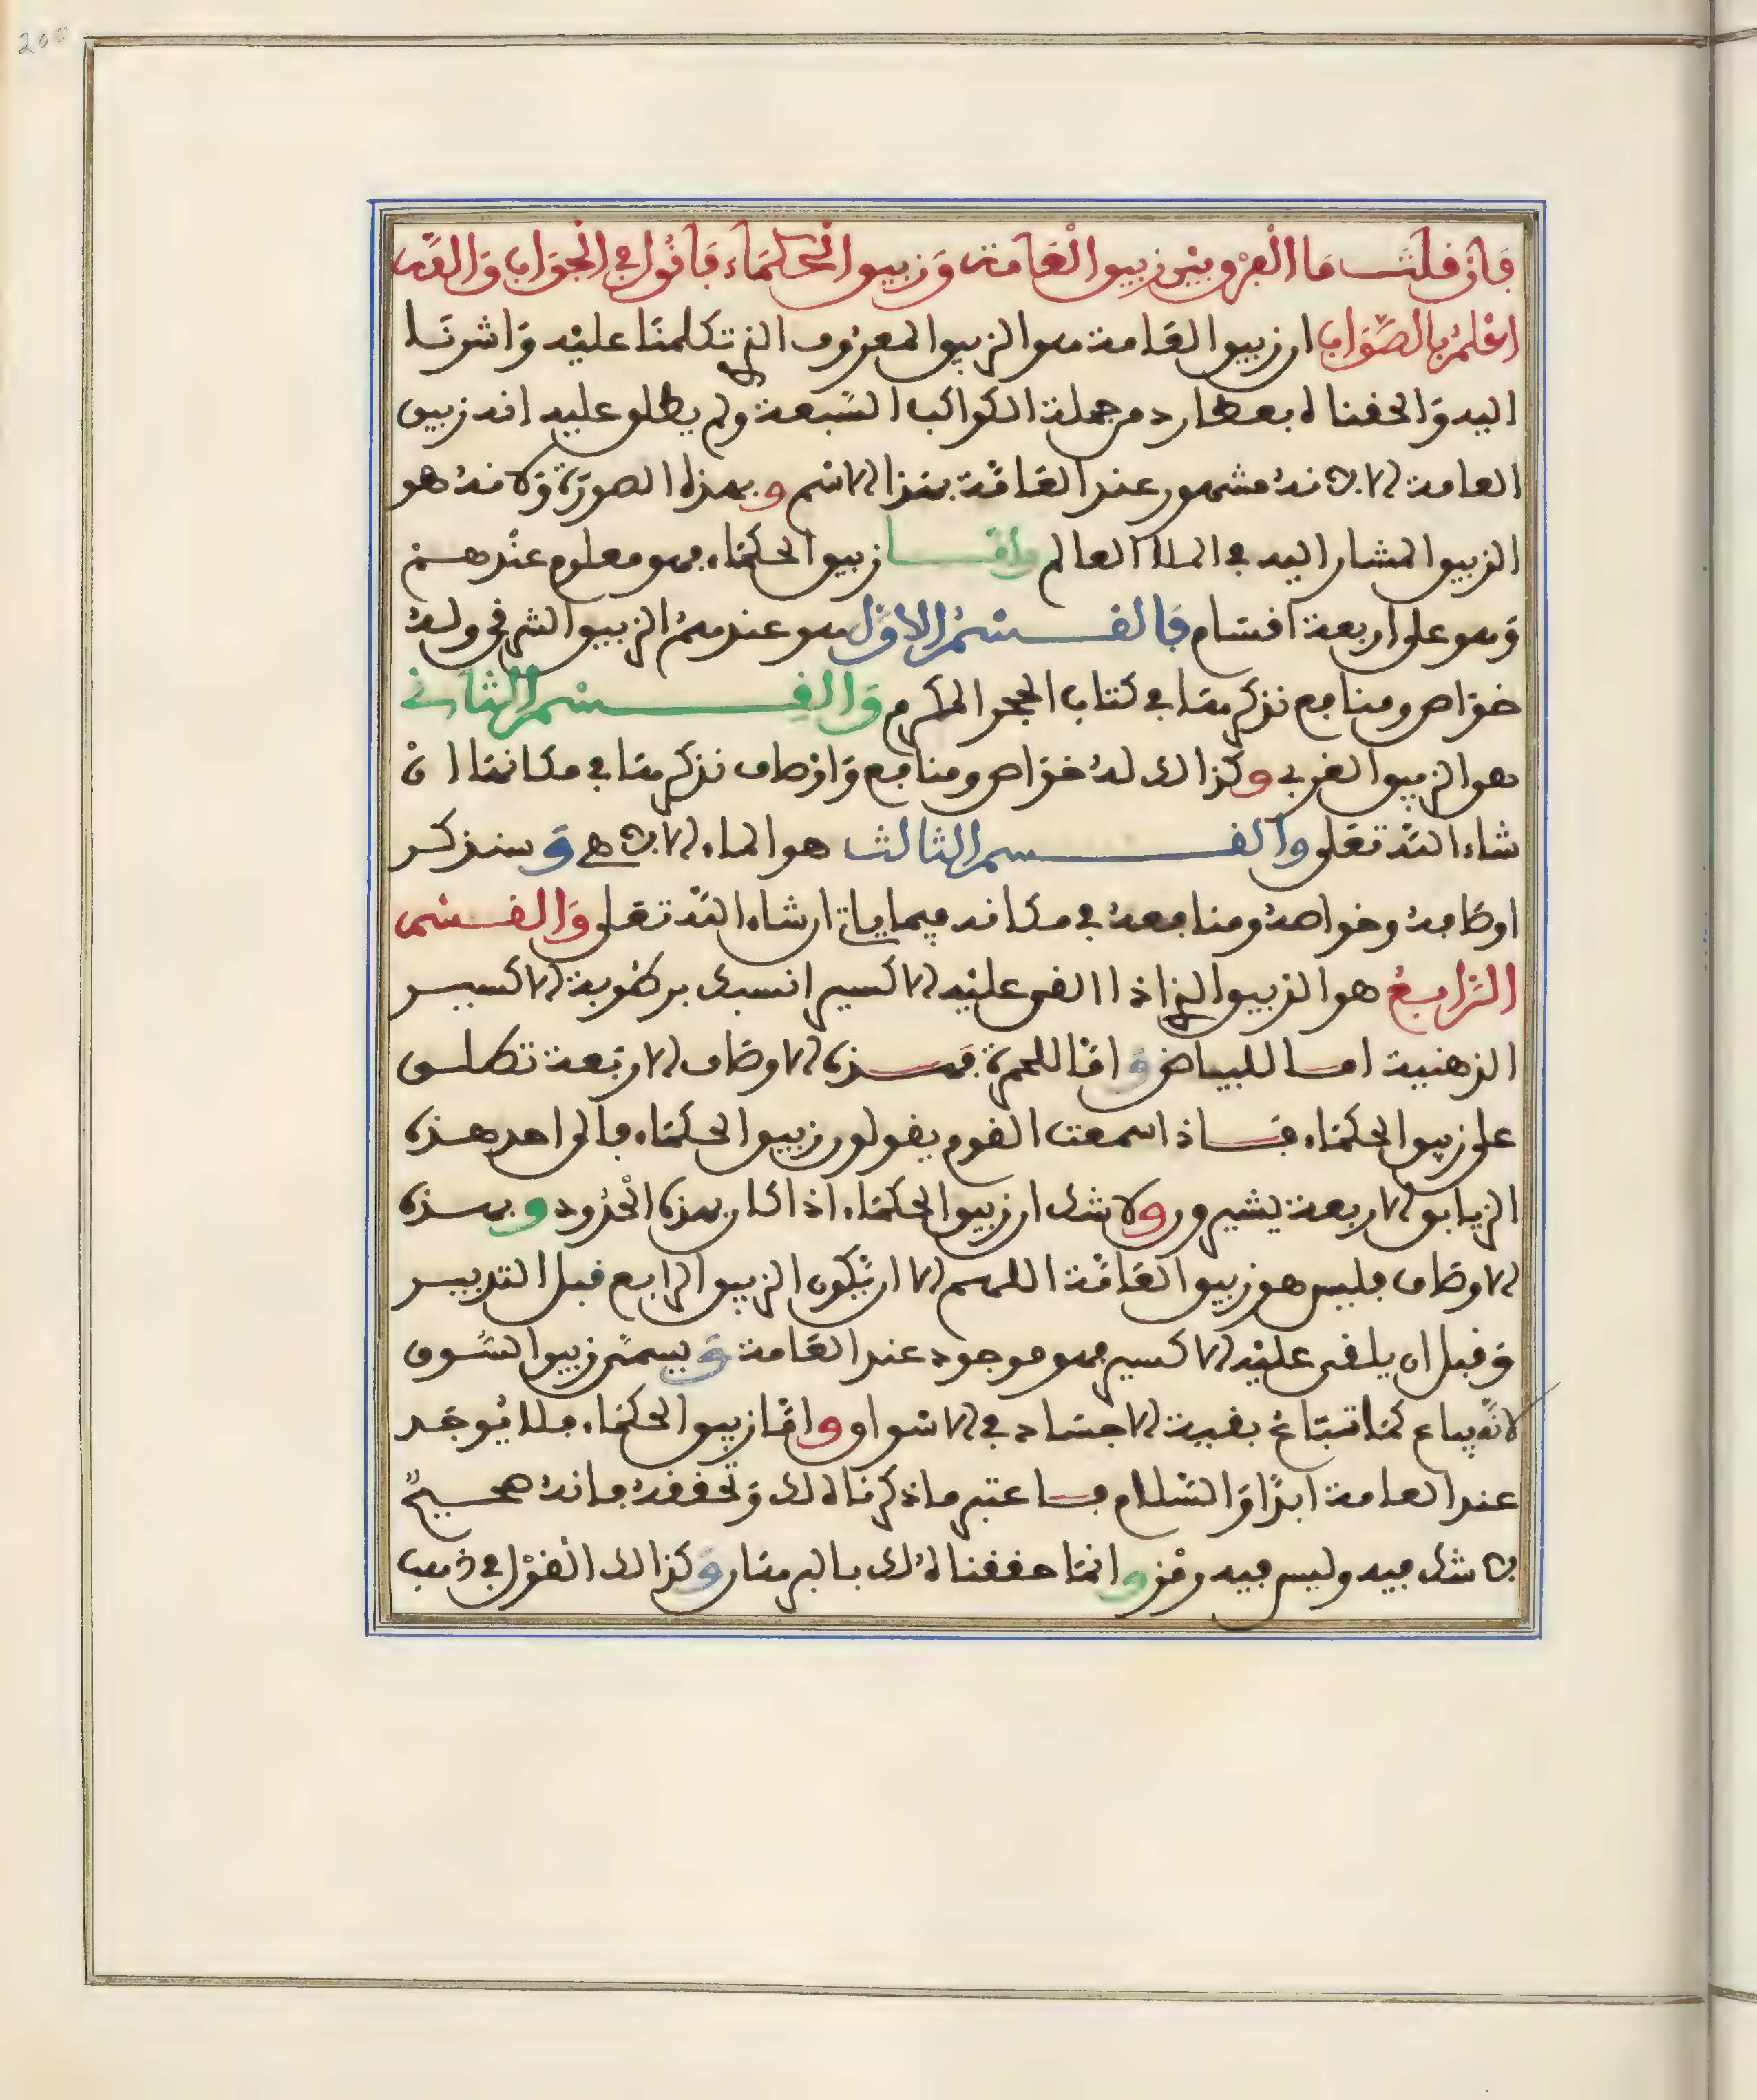 200
فَإن قلتَ مَا الْفرْق بيْن زيبق الْعَامة وَزيبق الْحكمَاء فأقُول في الْجوَاب وَالله
اعْلمُ بالصَّوَاب ان زيبق العَامة هو الزيبق المعرُوف الذي تكلمنَا عليْه وَاشرنَا
اليه وَالحقناه بعطارد من جملة الكواكب السَّبعة ولم يطلق عليه انه زيبق
العامة الا لانهُ مشهور عند العَامَّة بهَذا الاسْم و بهذه الصورَة وَلانهُ هو
الزيبق المشار اليه في الملا العالم وامَّا زيبق الحكمَاء فهو معلوم عنْدهمْ
وَهو على اربعة اقسَام فَالقسْمُ الاوَّل هو عندهمُ الزيبق الشرقي ولهُ
خوَاص ومنافع نذكرهَا في كتاب الحجر المكرم وَالقِسْم الثاني
هو الزيبق الغربي وكذالك لهُ خوَاص ومنافع وَاوْصاف نذكرهَا في مكانهَا انْ
شاء اللّه تعَلى والقسم الثالث هو الماء الالاهي وَسنذكر
اوصَافهُ وخواصهُ ومنافعهُ في مكانه فيما ياتي ان شاء اللّه تعَلى وَالقسْم
الرَّابعُ هو الزيبق الذي اذا القي عليْه الاكسير انسبك برطُوبة الاكسير
الذهنية اما للبياض وَامَّا للحمرَة فهذه الاوصَاف الاربَعة تطلق
على زيبق الحكمَاء فَاذا سمعت القوم يقولون زيبق الحكمَاء فالى احد هذه
الزيابق الاربعة يشيرون ولا شك ان زيبق الحكمَاء اذا كان بهذه الحُدُود وبهذه
الاوصَاف فليس هو زيبق العَامَّة اللهم الا ان يَّكون الزيبق الرابع قبل التدبير
وَقبل ان يلقى عليْه الاكسير فهو موجود عند العَامة وَيسمَّى زيبق السُّوق
لانَّه يباع كمَا تبَاعُ بقية الاجسَاد في الاسْواق وامَّا زيبق الحكمَاء فلا يُوجَد
عند العامة ابدًا وَالسَّلام فاعتبر ما ذكرنَاه لك وَتحققهُ فانهُ صحيحٌ
لا شك فيه وليس فيه رمْز وانمَا حققنا لكَ بالبرهَان وَكذالك القوْل في ذهب